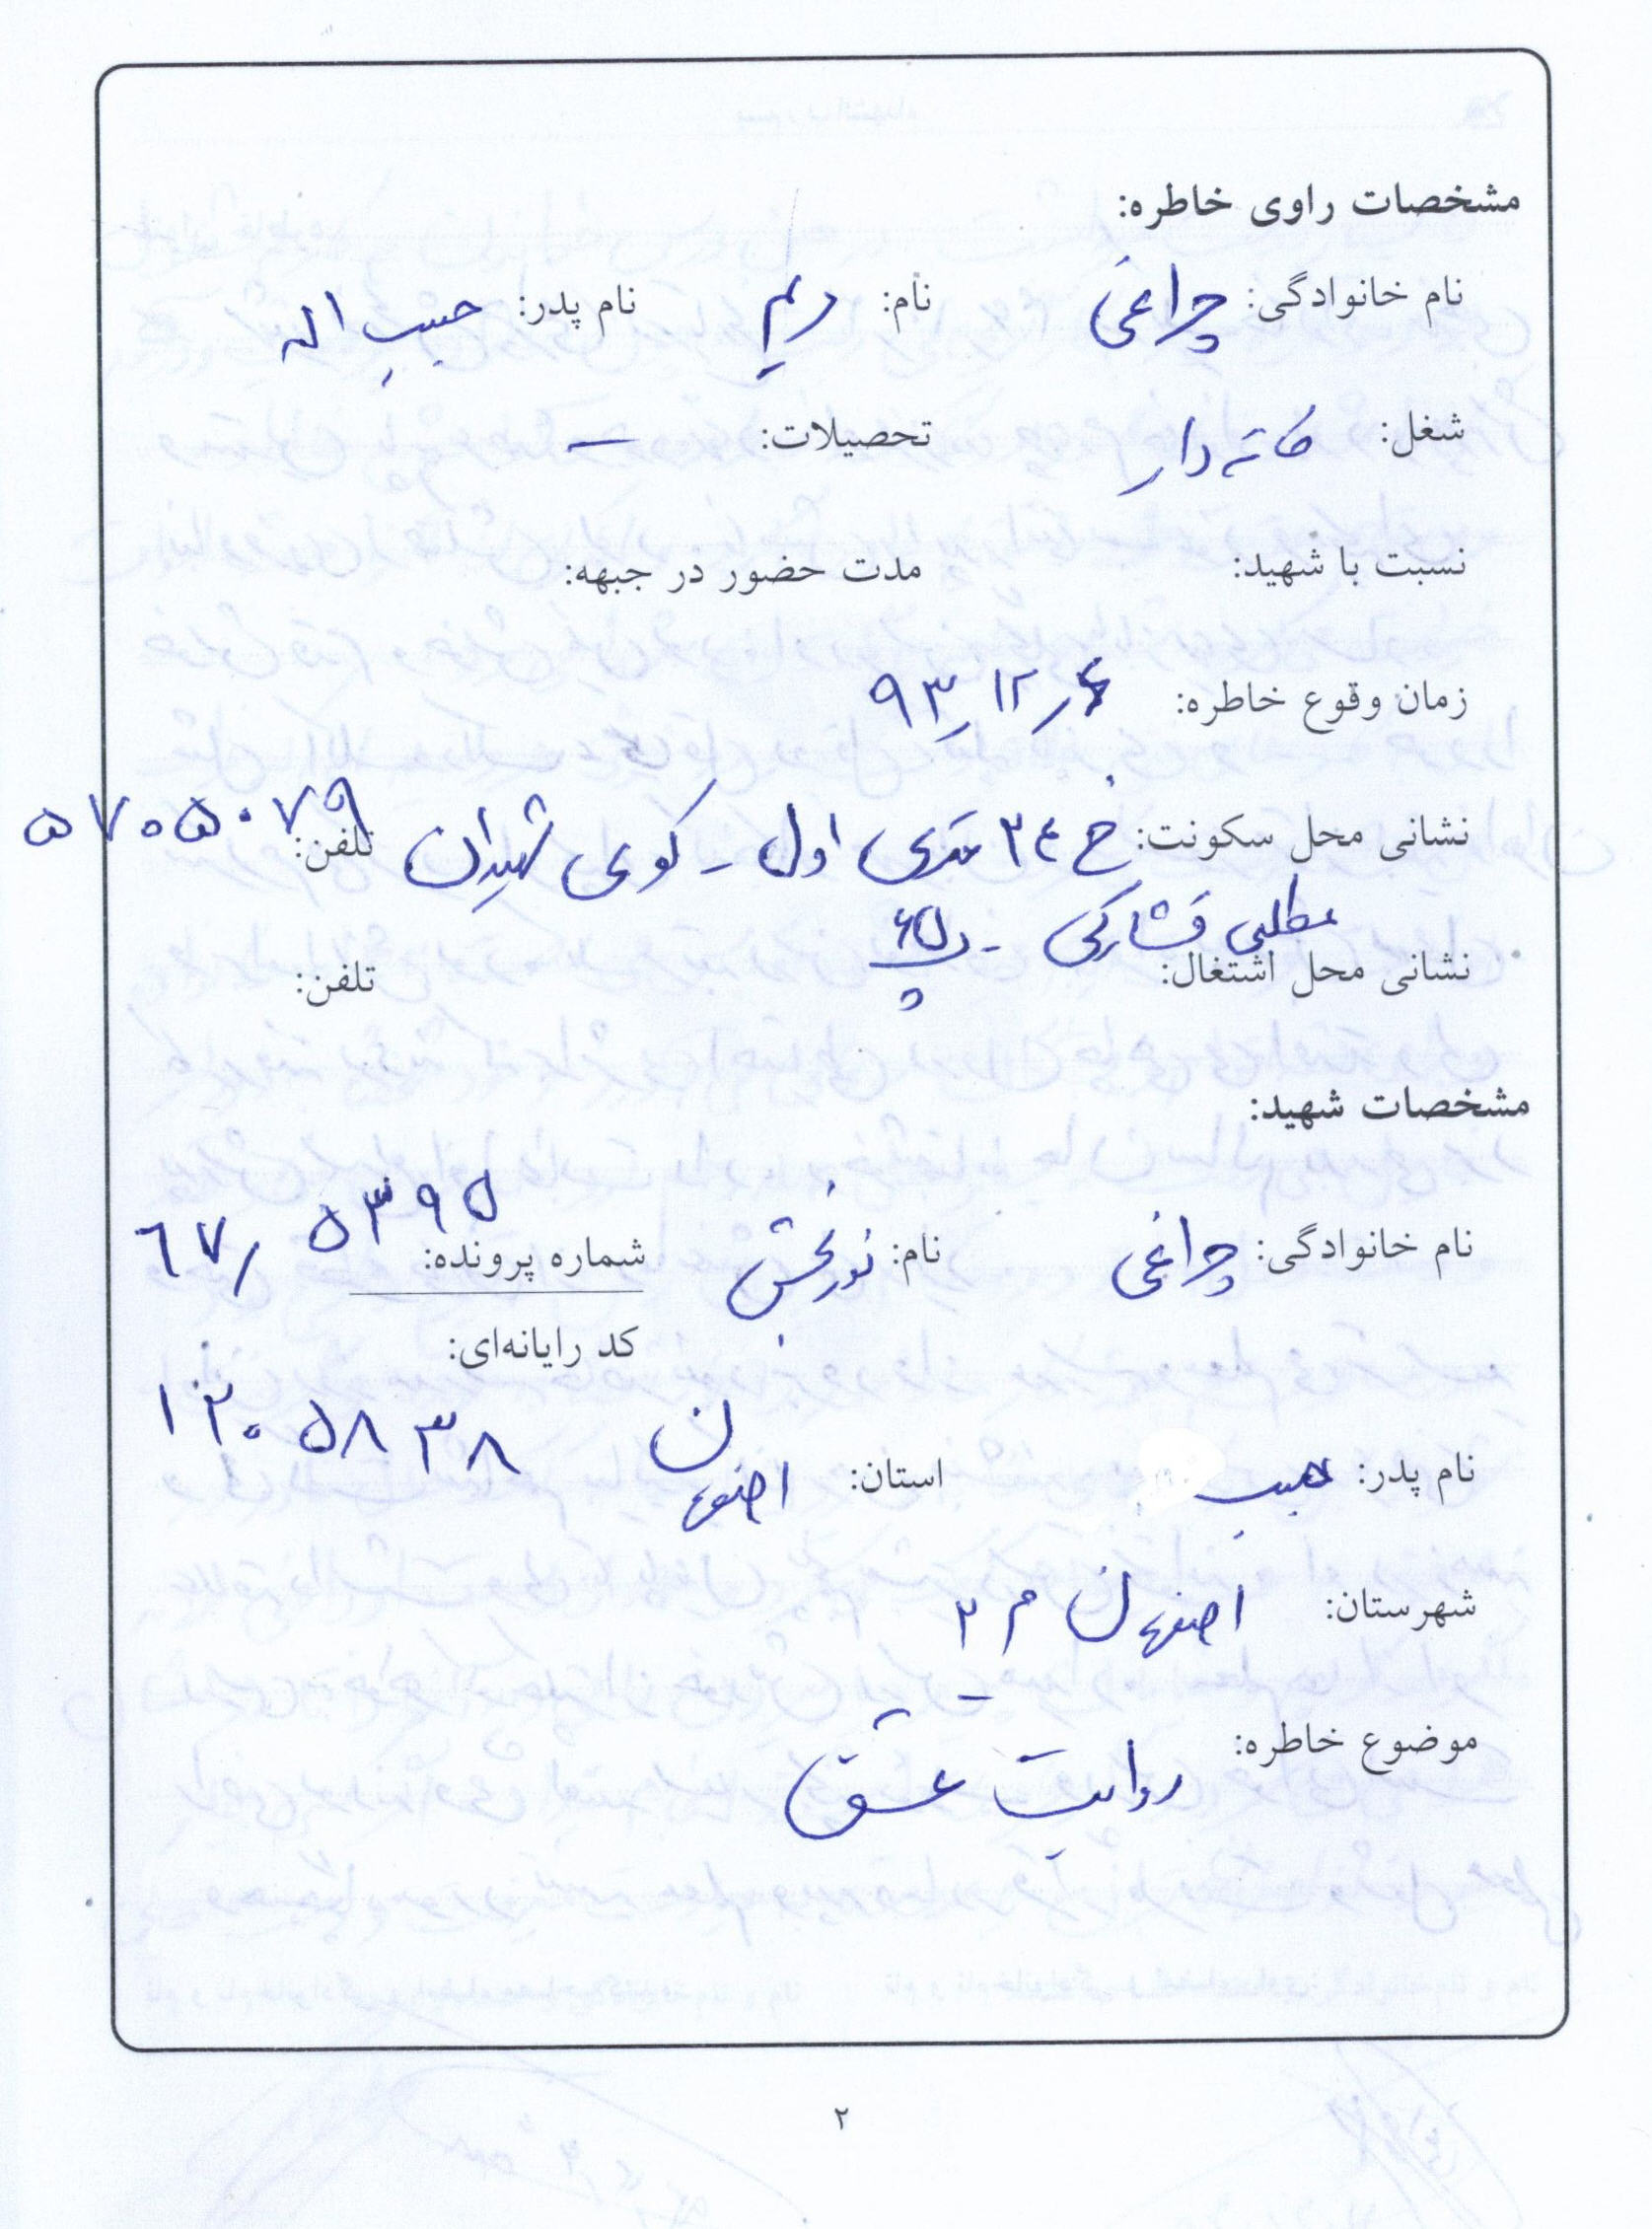 مشخصات راوی خاطره:
نام خانوادگی: چراغی نام: مریم نام پدر: حبیب اله
شغل: خانه دار تحصیلات: –
نسبت با شهید: مدت حضور در جبهه:
زمان وقوع خاطره: ۹۳/۱۲/۶
نشانی محل سکونت: خ ۲۴ متری اول - کوی شهیدان تلفن: ۵۷۰۵۰۷۹
مطلبی فشارکی - پ ۶۵
نشانی محل اشتغال: تلفن:
مشخصات شهید:
نام خانوادگی: چراغی نام: نوربخش شماره پرونده: ۶۷/۵۳۹۵
کد رایانه‌ای:
۱۲۰۵۸۳۸
نام پدر: حبیب استان: اصفهان
شهرستان: اصفهان م ۲
موضوع خاطره: روایت عشق
۲